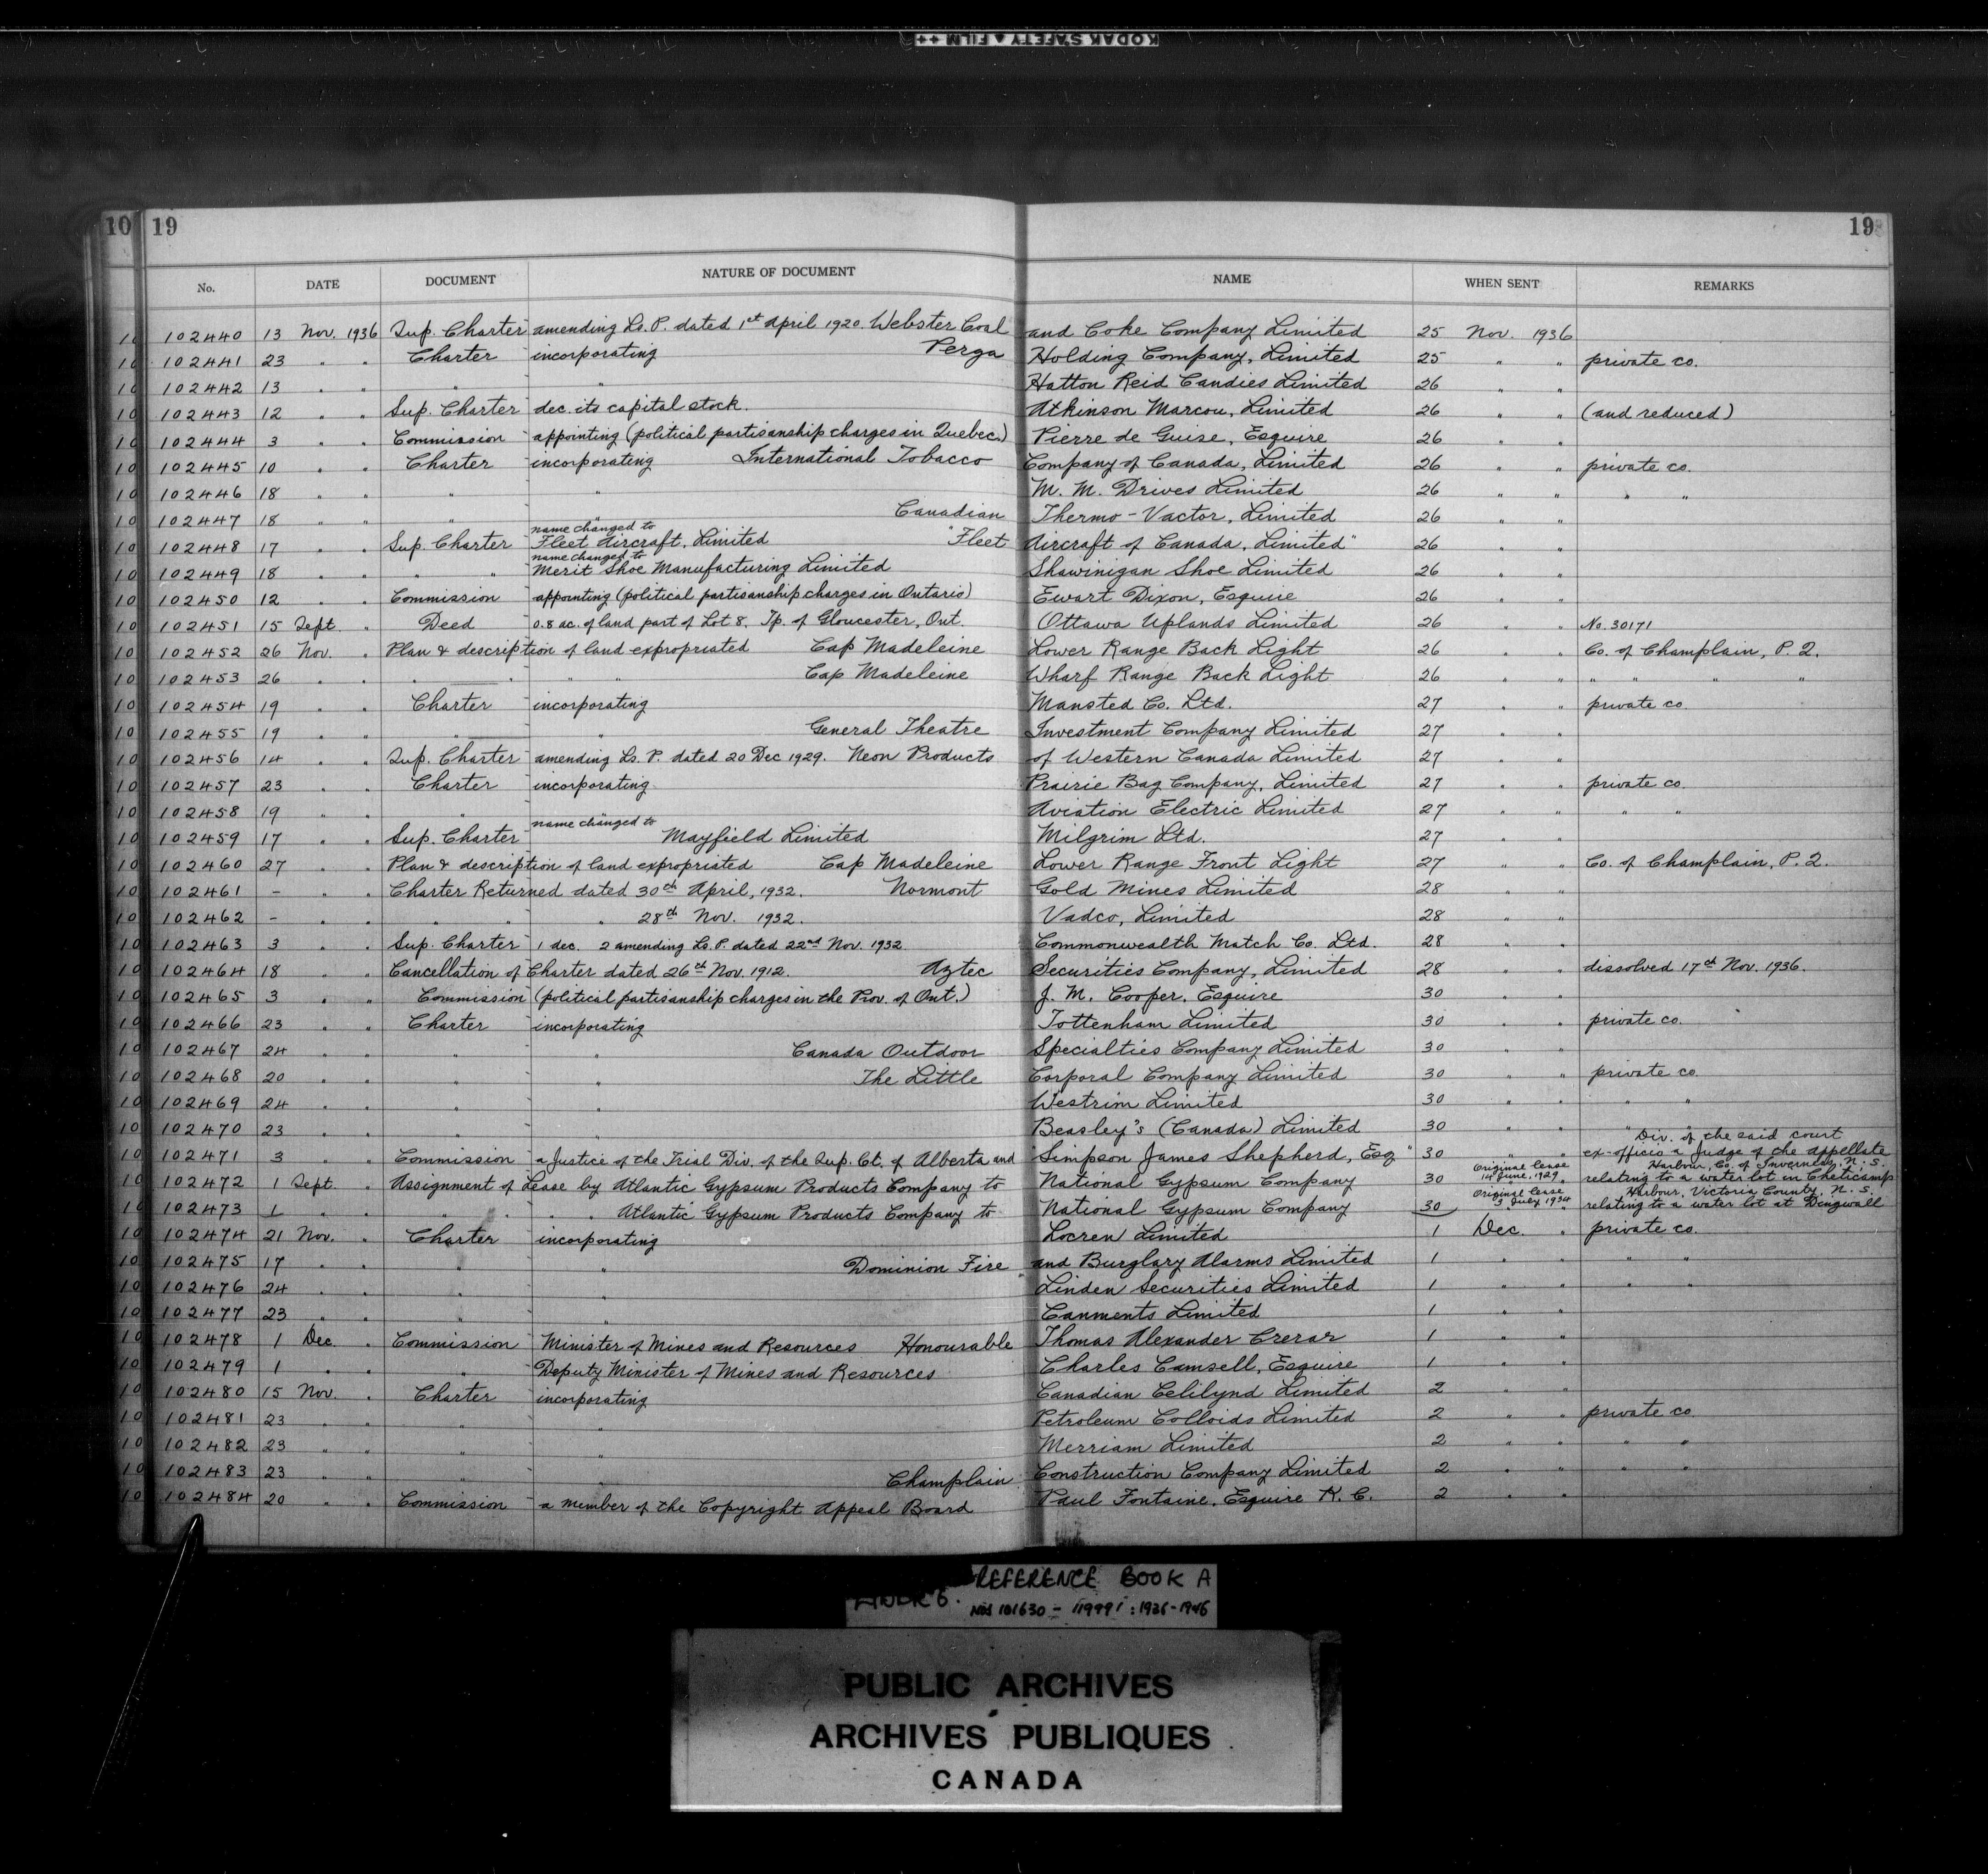 KODAK SAFETY ▲ FILM ++
10 19 19
No. DATE DOCUMENT NATURE OF DOCUMENT NAME WHEN SENT REMARKS
102440 13 Nov. 1936 Sup. Charter amending Ls. P. dated 1st April 1920. Webster Coal and Coke Company Limited 25 Nov. 1936
102441 23 " " Charter incorporating Perga Holding Company, Limited 25 " " private co.
102442 13 " " " " Hatton Reid Candies Limited 26 " "
102443 12 " " Sup. Charter dec. its capital stock. Atkinson Marcou, Limited 26 " " (and reduced)
102444 3 " " Commission appointing (political partisanship charges in Quebec.) Pierre de Guise, Esquire 26 " "
102445 10 " " Charter incorporating International Tobacco Company of Canada, Limited 26 " " private co.
102446 18 " " " " M. M. Drives Limited 26 " " " "
102447 18 " " " " Canadian Thermo-Vactor, Limited 26 " "
name changed to
102448 17 " " Sup. Charter Fleet Aircraft, Limited "Fleet Aircraft of Canada, Limited" 26 " "
name changed to
102449 18 " " " " Merit Shoe Manufacturing Limited Shawinigan Shoe Limited 26 " "
102450 12 " " Commission appointing (political partisanship charges in Ontario) Ewart Dixon, Esquire 26 " "
102451 15 Sept. " Deed 0.8 ac. of land part of Lot 8, Tp. of Gloucester, Ont. Ottawa Uplands Limited 26 " " No. 30171
102452 26 Nov. " Plan & description of land expropriated Cap Madeleine Lower Range Back Light 26 " " Co. of Champlain, P. Q.
102453 26 " " " " " " Cap Madeleine Wharf Range Back Light 26 " " " " " "
102454 19 " " Charter incorporating Mansted Co. Ltd. 27 " " private co
102455 19 " " " " General Theatre Investment Company Limited 27 " "
102456 14 " " Sup. Charter amending Ls. P. dated 20 Dec 1929. Neon Products of Western Canada Limited 27 " "
102457 23 " " Charter incorporating Prairie Bag Company, Limited 27 " " private co.
102458 19 " " " " Aviation Electric Limited 27 " " " "
name changed to
102459 17 " " Sup. Charter Mayfield Limited Milgrim Ltd. 27 " "
102460 27 " " Plan & description of land expropriated Cap Madeleine Lower Range Front Light 27 " " Co. of Champlain, P. Q.
102461 - " " Charter Returned dated 30th April, 1932. Normont Gold Mines Limited 28 " "
102462 - " " " " " 28th Nov. 1932. Vadco, Limited 28 " "
102463 3 " " Sup. Charter 1 dec. 2 amending Ls. P. dated 22nd Nov. 1932 Commonwealth Match Co. Ltd. 28 " "
102464 18 " " Cancellation of Charter dated 26th Nov. 1912. Aztec Securities Company, Limited 28 " " dissolved 17th Nov. 1936.
102465 3 " " Commission (political partisanship charges in the Prov. of Ont.) J. M. Cooper, Esquire 30 " "
102466 23 " " Charter incorporating Tottenham Limited 30 " " private co.
102467 24 " " " " Canada Outdoor Specialties Company Limited 30 " "
102468 20 " " " " The Little Corporal Company Limited 30 " " private co.
102469 24 " " " " Westrim Limited 30 " " " "
102470 23 " " " " Beasley's (Canada) Limited 30 " " " "
Div. of the said court
102471 3 " " Commission a Justice of the Trial Div. of the Sup. Ct. of Alberta and Simpson James Shepherd, Esq " 30 " " ex-officio a Judge of the Appellate
Original lease 14 June, 1929 Harbour, Co. of Inverness, N. S.
102472 1 Sept. " Assignment of Lease by Atlantic Gypsum Products Company to National Gypsum Company 30 " " relating to a water lot in Cheticamp
Original lease 3 July 1934 Harbour, Victoria County, N. S.
102473 1 " " " " " " Atlantic Gypsum Products Company to National Gypsum Company 30 " " relating to a water lot at Dingwall
102474 21 Nov. " Charter incorporating Locren Limited 1 Dec. " private co.
102475 17 " " " " Dominion Fire and Burglary Alarms Limited 1 " " " "
102476 24 " " " " Linden Securities Limited 1 " " " "
102477 23 " " " " Canments Limited 1 " "
102478 1 Dec " Commission Minister of Mines and Resources Honourable Thomas Alexander Crerar 1 " "
102479 1 " " " Deputy Minister of Mines and Resources Charles Camsell, Esquire 1 " "
102480 15 Nov. " Charter incorporating Canadian Celilynd Limited 2 " "
102481 23 " " " " Petroleum Colloids Limited 2 " " private co
102482 23 " " " " Merriam Limited 2 " " " "
102483 23 " " " " Champlain Construction Company Limited 2 " " " "
102484 20 " " Commission a member of the Copyright Appeal Board Paul Fontaine, Esquire K. C. 2 " "
REFERENCE BOOK A
Nos 101630 - 119991 : 1936-1946
PUBLIC ARCHIVES
ARCHIVES PUBLIQUES
CANADA